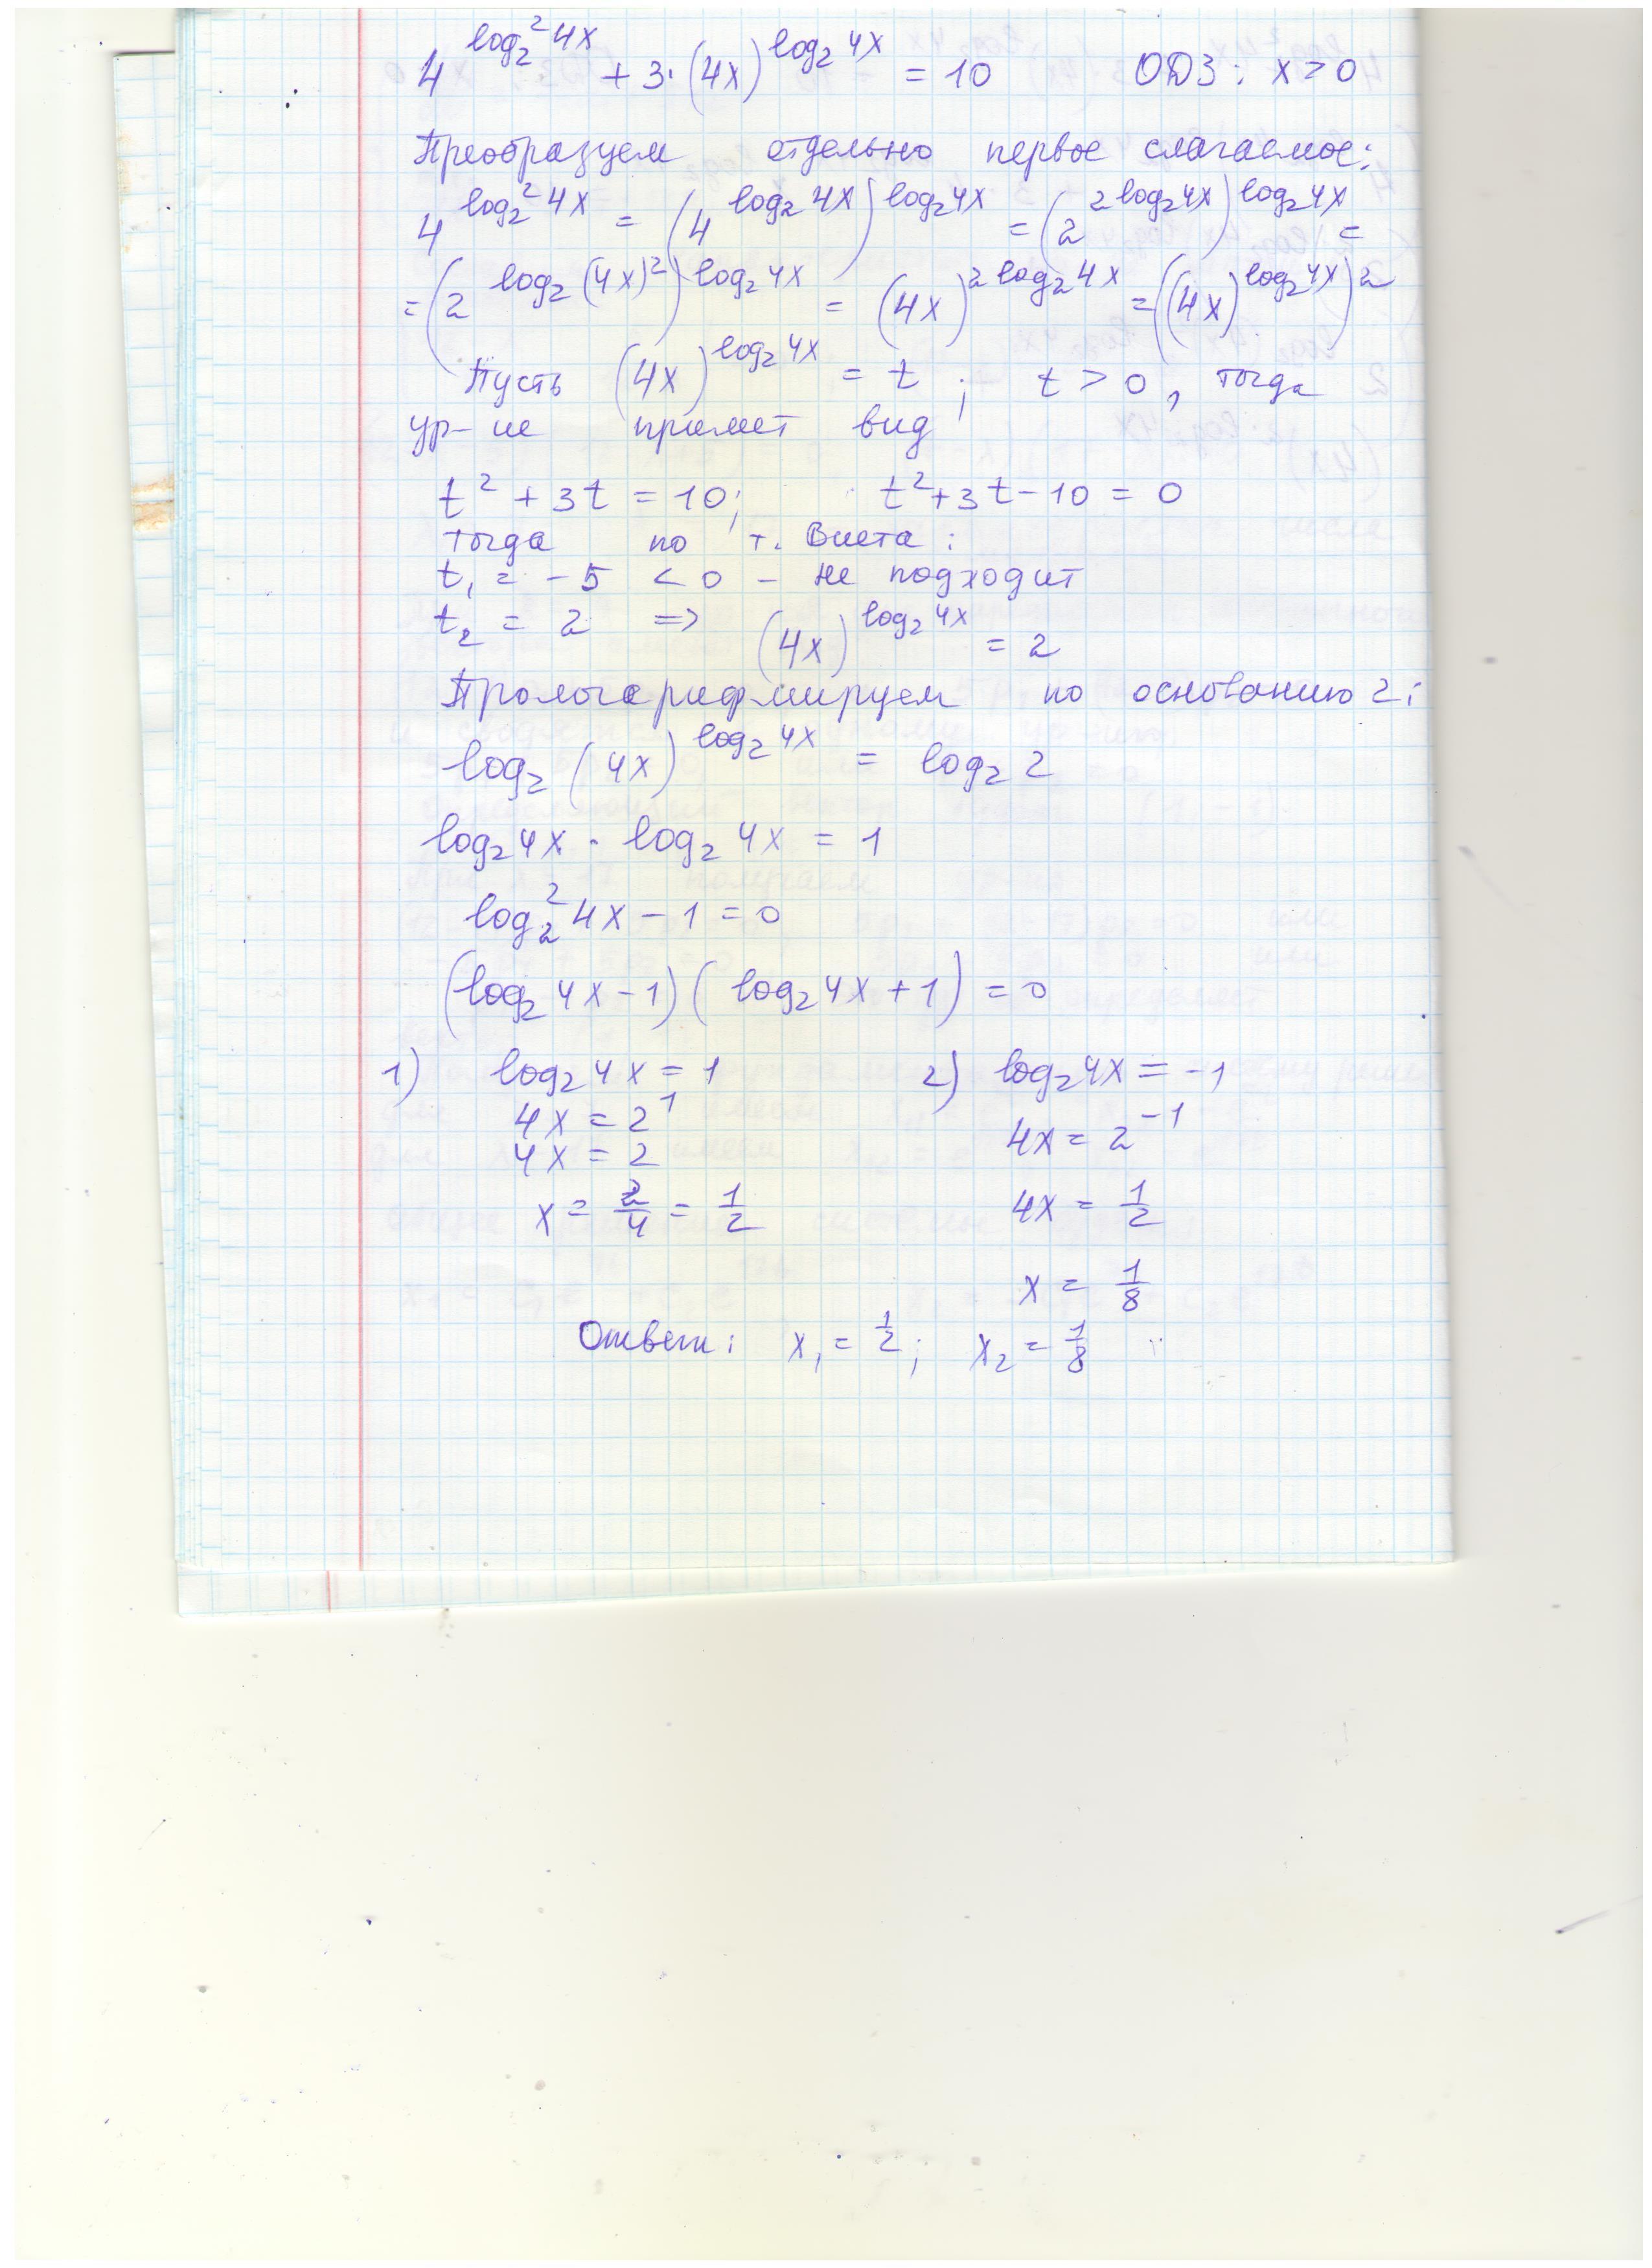 4^(log₂² 4x) + 3·(4x)^(log₂ 4x) = 10 ОДЗ: x > 0
Преобразуем отдельно первое слагаемое:
4^(log₂² 4x) = (4^(log₂ 4x))^(log₂ 4x) = (2^(2 log₂ 4x))^(log₂ 4x) =
= (2^(log₂ (4x)²))^(log₂ 4x) = (4x)^(2 log₂ 4x) = ((4x)^(log₂ 4x))²
Пусть (4x)^(log₂ 4x) = t ; t > 0, тогда
ур-ие примет вид
t² + 3t = 10; t² + 3t - 10 = 0
тогда по т. Виета:
t₁ = -5 < 0 - не подходит
t₂ = 2 => (4x)^(log₂ 4x) = 2
Прологарифмируем по основанию 2:
log₂ (4x)^(log₂ 4x) = log₂ 2
log₂ 4x · log₂ 4x = 1
log₂² 4x - 1 = 0
(log₂ 4x - 1)( log₂ 4x + 1) = 0
1) log₂ 4x = 1 2) log₂ 4x = -1
4x = 2¹ 4x = 2⁻¹
4x = 2 4x = 1/2
x = 2/4 = 1/2
x = 1/8
Ответ: x₁ = 1/2; x₂ = 1/8